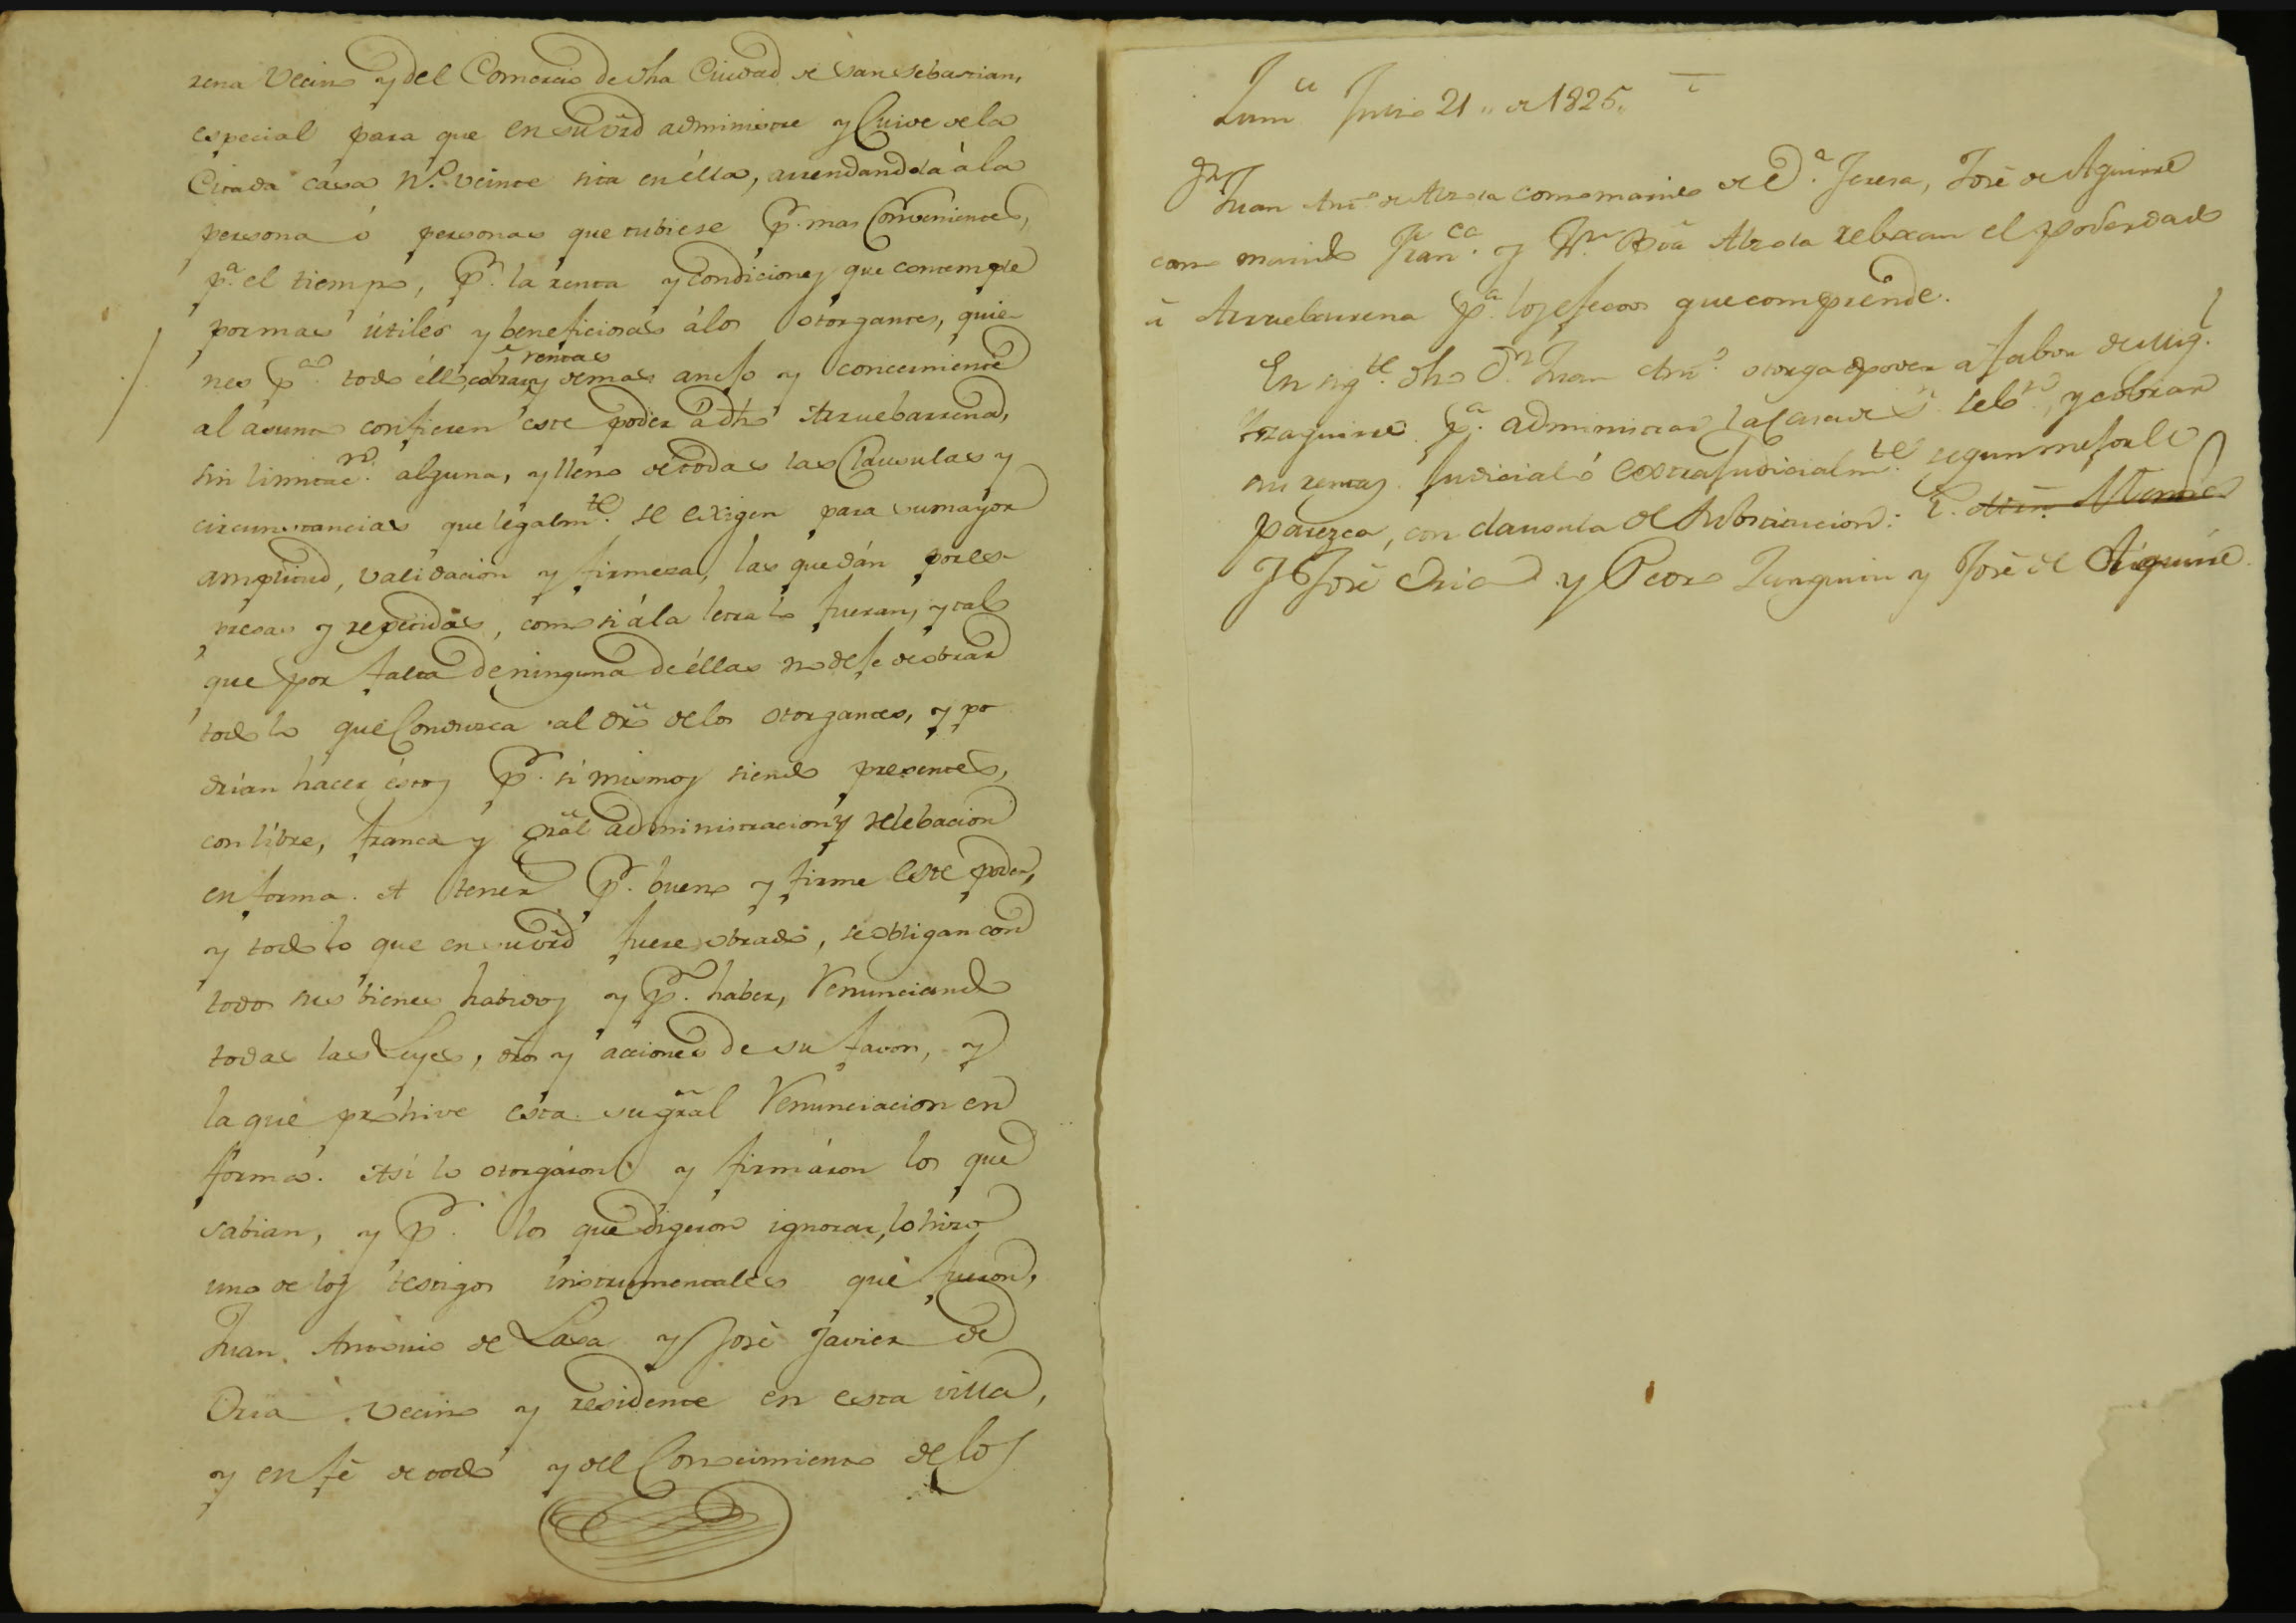 rena Vecino y del Comercio de dha Ciudad de San Sebastian,
especial para que en su vrd administre y Cuide de la
Citada casa N.º veinte sita en élla, arrendandola à la
persona ò personas que tubiese p.r mas Combenientes,
p.a el tiempo, p.r la renta y condiciones que contemple
por mas útiles y beneficiosas álos Otorgantes, quie-
nes p.a todo éllo, cobrar rentas y demas anejo y concerniente
al ásunto confieren este poder à dho Arruebarrena,
sin limitac.n alguna, y lleno de todas las Clausulas y
circunstancias que legalm.te se exigen para su mayor
amplitud, validacion y firmeza, las que dán por es-
presas y repetidas, como si á la letra lo fueran, y tal
que por falta de ninguna de éllas no deje de obrar
todo lo que Conduzca al dro de los Otorgantes, y po
drian hacer éstos p.r si mismos siendo presentes,
con libre, franca y gral administracion y relebacion
en forma. A tener p.r bueno y firme este poder,
y todo lo que en su vrd fuere obrado, se obligan con
todos sus bienes habidos y p.r haber, Renunciando
todas las Leyes, dros y acciones de su favor, y
la que prohive esta su gral Renunciacion en
forma. Asi lo otorgáron y firmáron los que
sabian, y p.r los que digeron ignorar, lo hizo
uno de los testigos instrumentales que fueron,
Juan Antonio de Lasa y José Javier de
Oria, Vecino y residente en esta villa,
y en fé de todo y del Conocimiento de los
Julio 21 „ de 1825„
Juan Ant.o de Alzola como marido de D.a Teresa, José de Aguirre
como marido Fran.ca y Alzola rebocan el poder dado
à Arruebarrena p.a los efectos que comprende.
En sig.te dho D.n Juan Ant.o otorga poder á fabor de Mig.l
Yzaguirre p.a administrar la Casa de S.n Seb.n, y cobrar
sus rentas Judicial ó extrajudicialm.te segun mejor le
parezca, con clausula de substitucion:
José Oria y Pedro y José de Aguirre